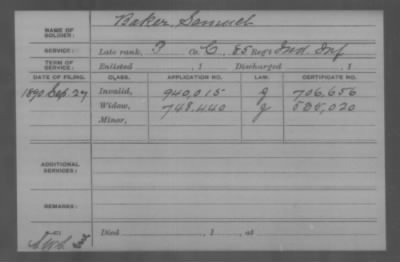 Baker, Samuel
NAME OF SOLDIER:
SERVICE: Late rank, P Co. C, 85 Reg't Ind. Inf
TERM OF SERVICE: Enlisted , 1 Discharged , 1
DATE OF FILING. CLASS. APPLICATION NO. LAW. CERTIFICATE NO.
1890 Sep. 27 Invalid, 940,015 g 706,656
Widow, 748,440 g 020
Minor,
ADDITIONAL SERVICES:
REMARKS:
Died , 1 , at